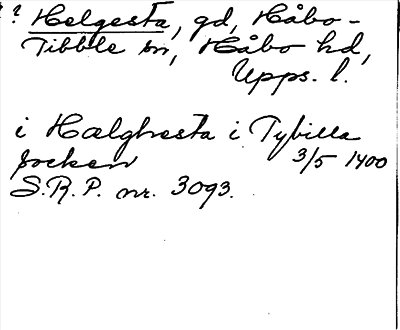 ? Helgesta, gd, Håbo-
Tibble sn, Håbo hd,
Upps. l.
i Hælghesta i Tybilla
socken 3/5 1400
S.R.P. nr. 3093.